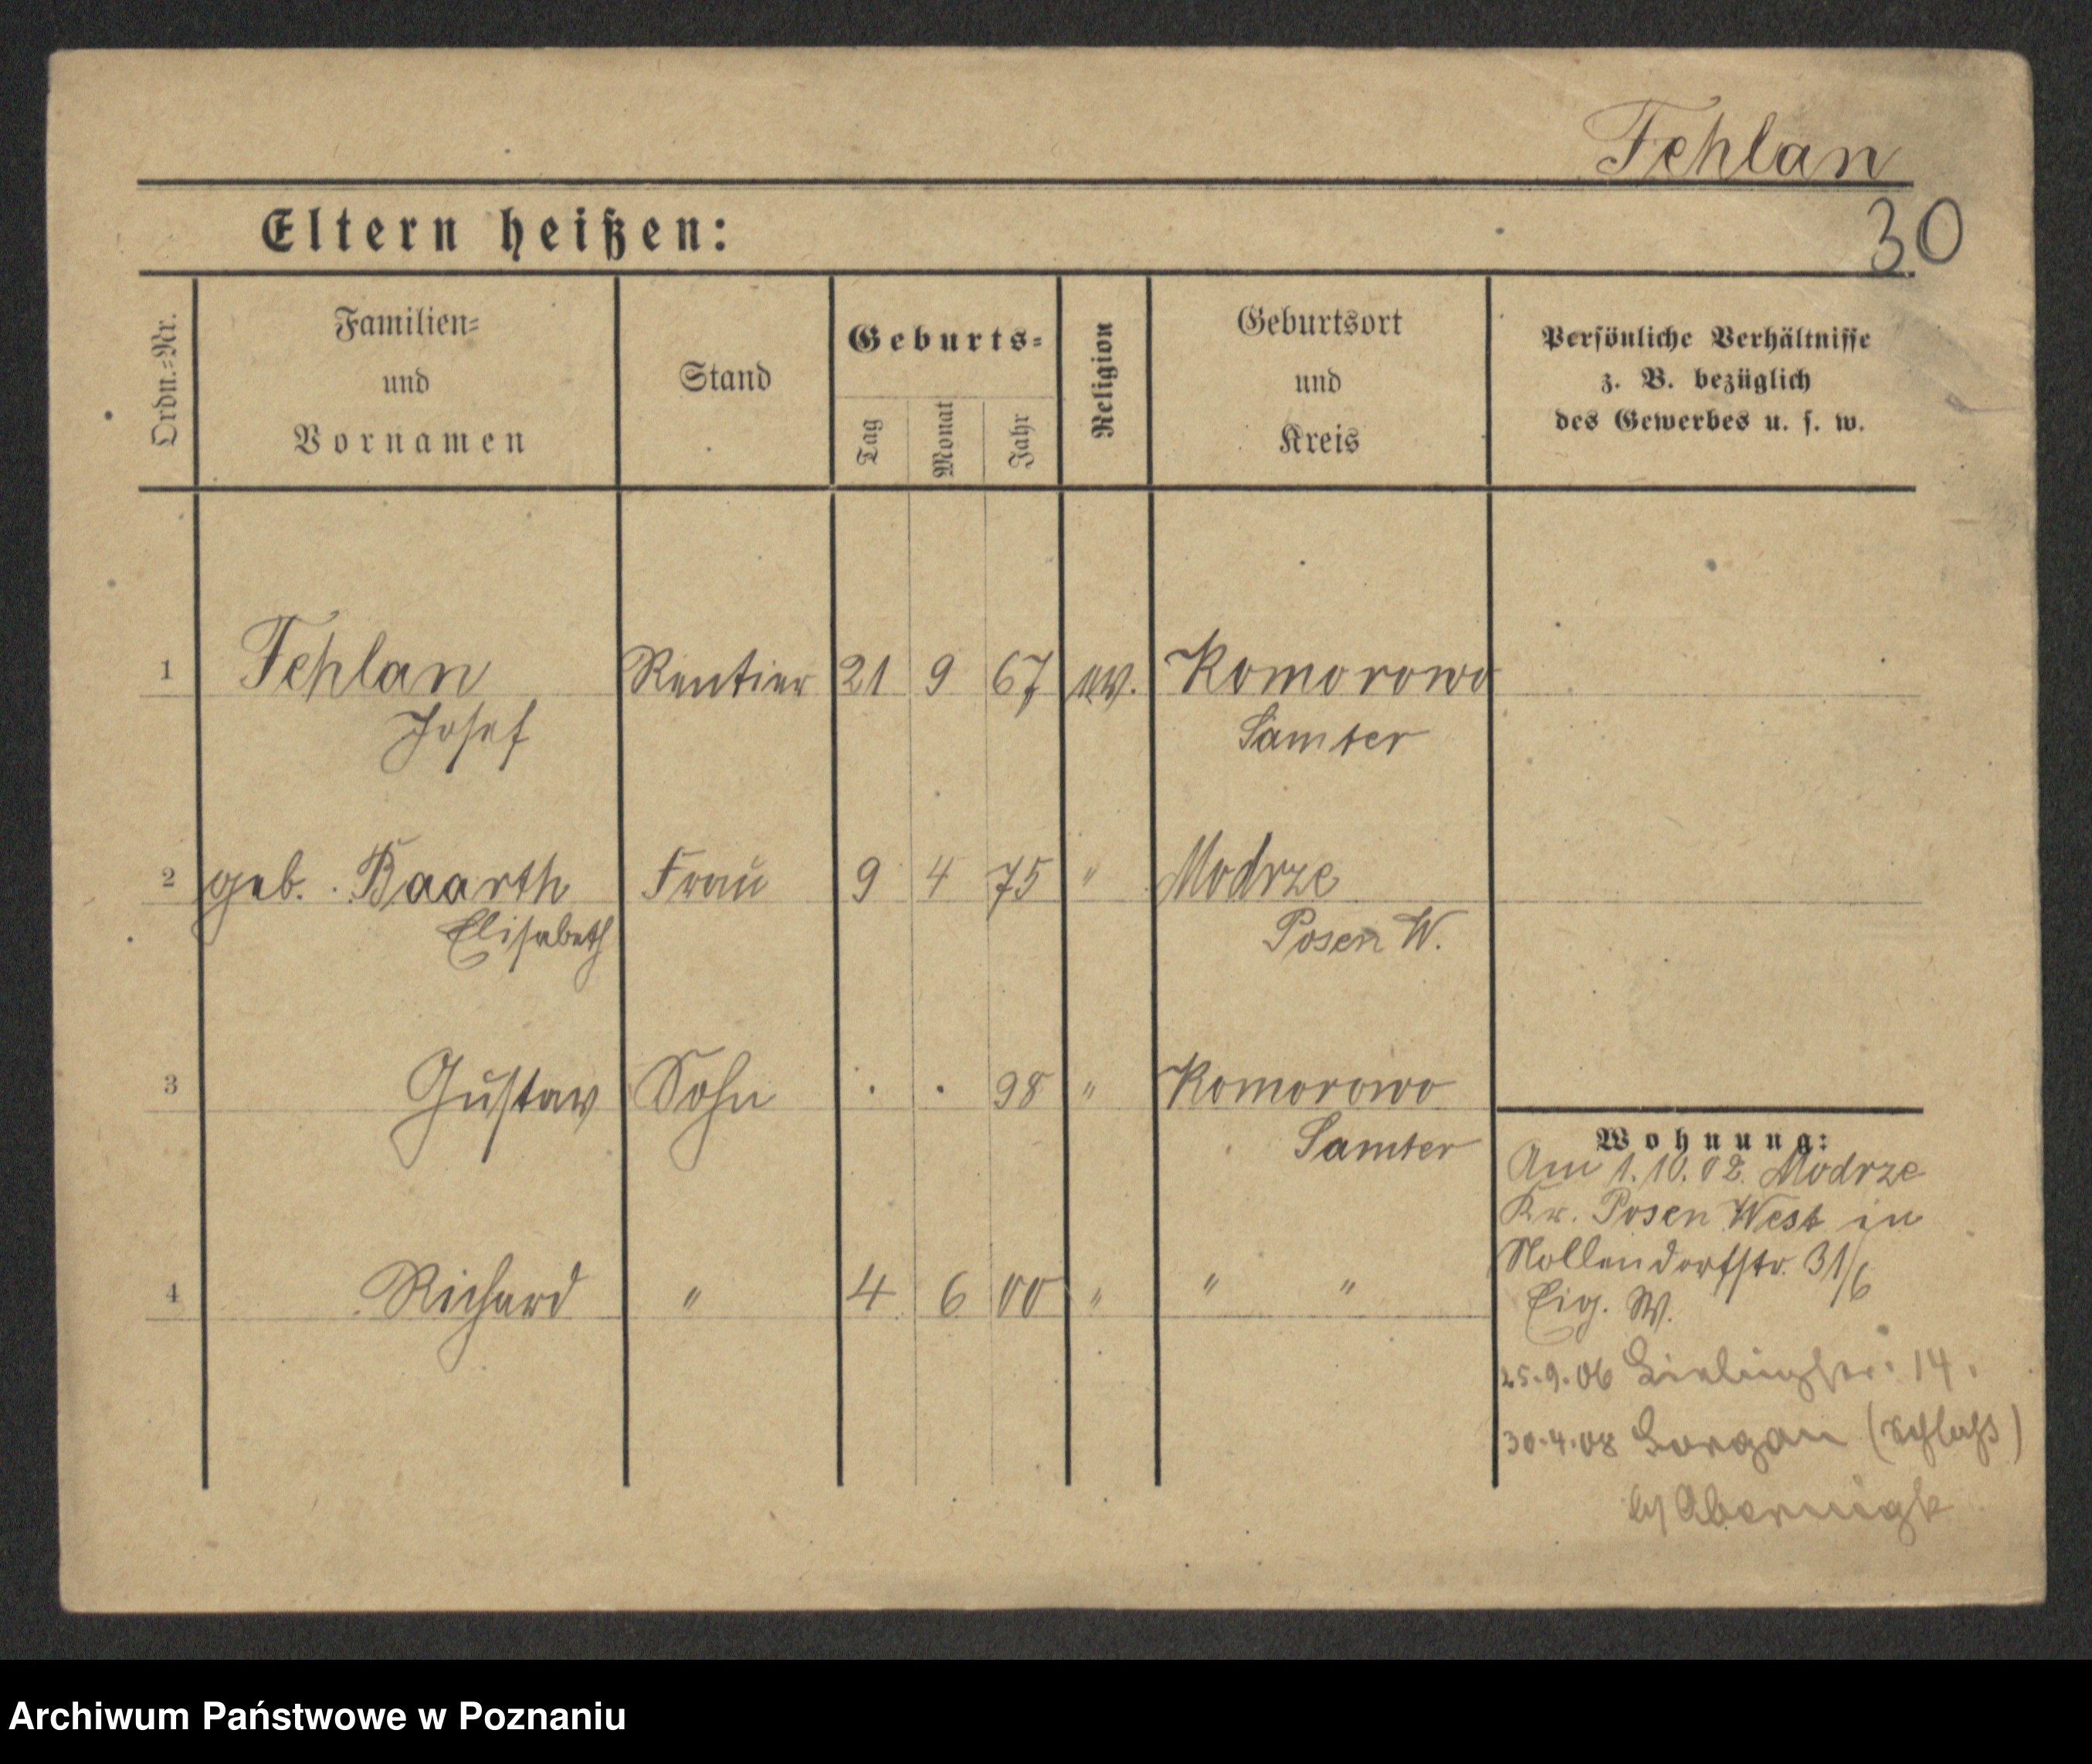 Fehlan
30
Eltern heißen:
Ordn.-Nr.
Familien-
und
Vornamen
Stand
Geburts-
Tag
Monat
Jahr
Religion
Geburtsort
und
Kreis
Persönliche Verhältnisse
z. B. bezüglich
des Gewerbes u. s. w.
1 Fehlan Rentier 21 9 67 ev. Komorowo
Josef Samter
2 geb. Baarth Frau 9 4 75 " Modrze
Elisabeth Posen W.
3 Gustav Sohn . . 98 " Komorowo
Samter
Wohnung:
Am 1.10.02. Modrze
Kr. Posen West in
Nollendorfstr. 31/6
Eig. W.
4 Richard " 4 6 00 " " "
25.9.06 14.
30.4.08 (Schloß)
Archiwum Państwowe w Poznaniu